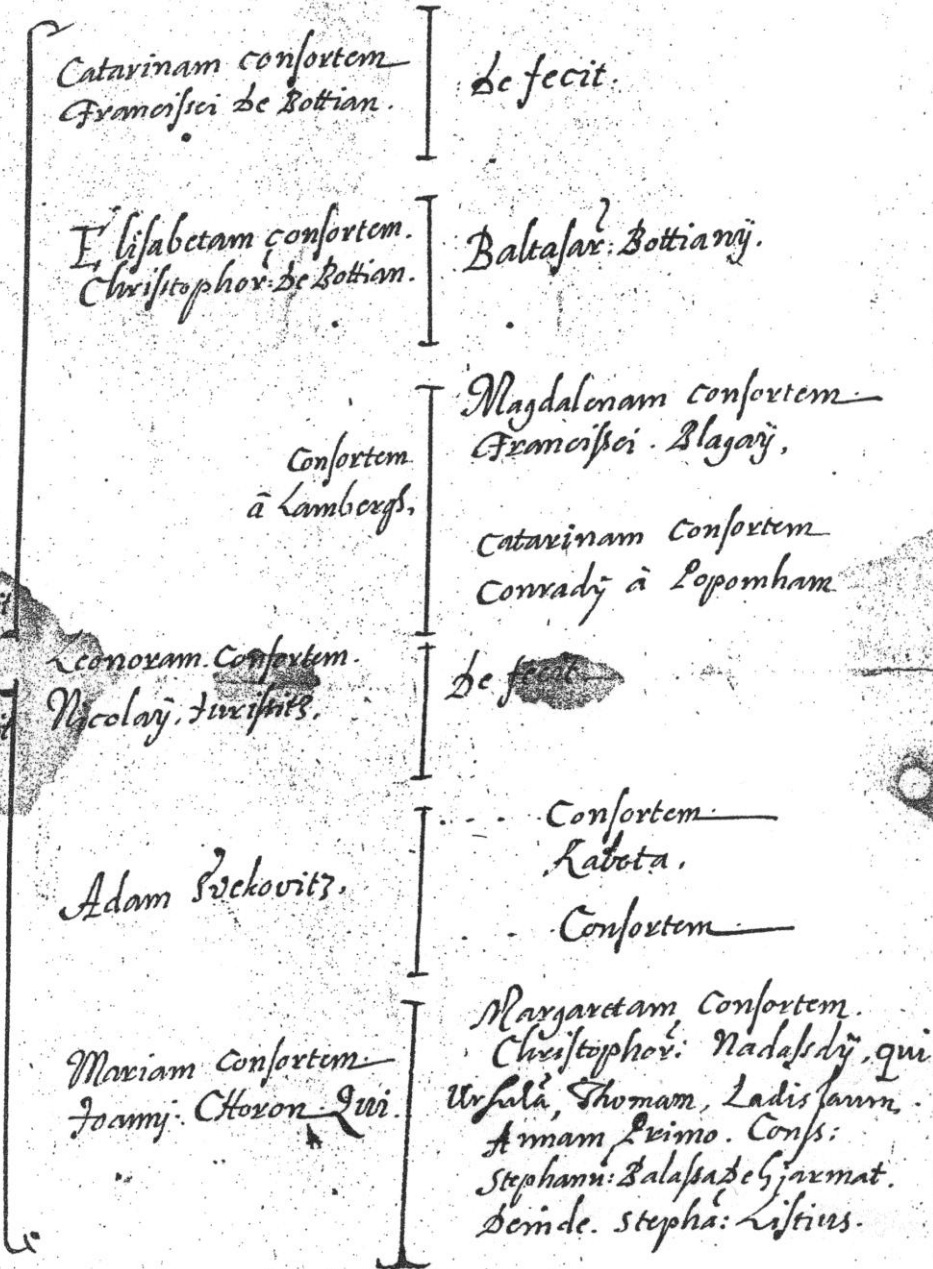 Catarinam consortem
Francisci de Bottian.
de fecit.
Elisabetam consortem.
Christophor: de Bottian.
Baltasar: Bottianÿ.
Consortem
â Lambergh,
Magdalenam consortem
Francisci. Blagaÿ,
Catarinam Consortem
Conradÿ â Popomham
Leonoram. Consortem.
Nicolaÿ. Juristitz.
de fecit
Adam Svekovitz.
Consortem
Consortem
Mariam consortem
Joannj. CHoron. Qui.
Margaretam Consortem.
Christophor: Nadasdÿ, qui
Ursulã, Thomam, Ladislaum.
Annam Primo. Cons:
Stephanũ: Balassa de Gjarmat.
Deinde. Stephã: Listius.